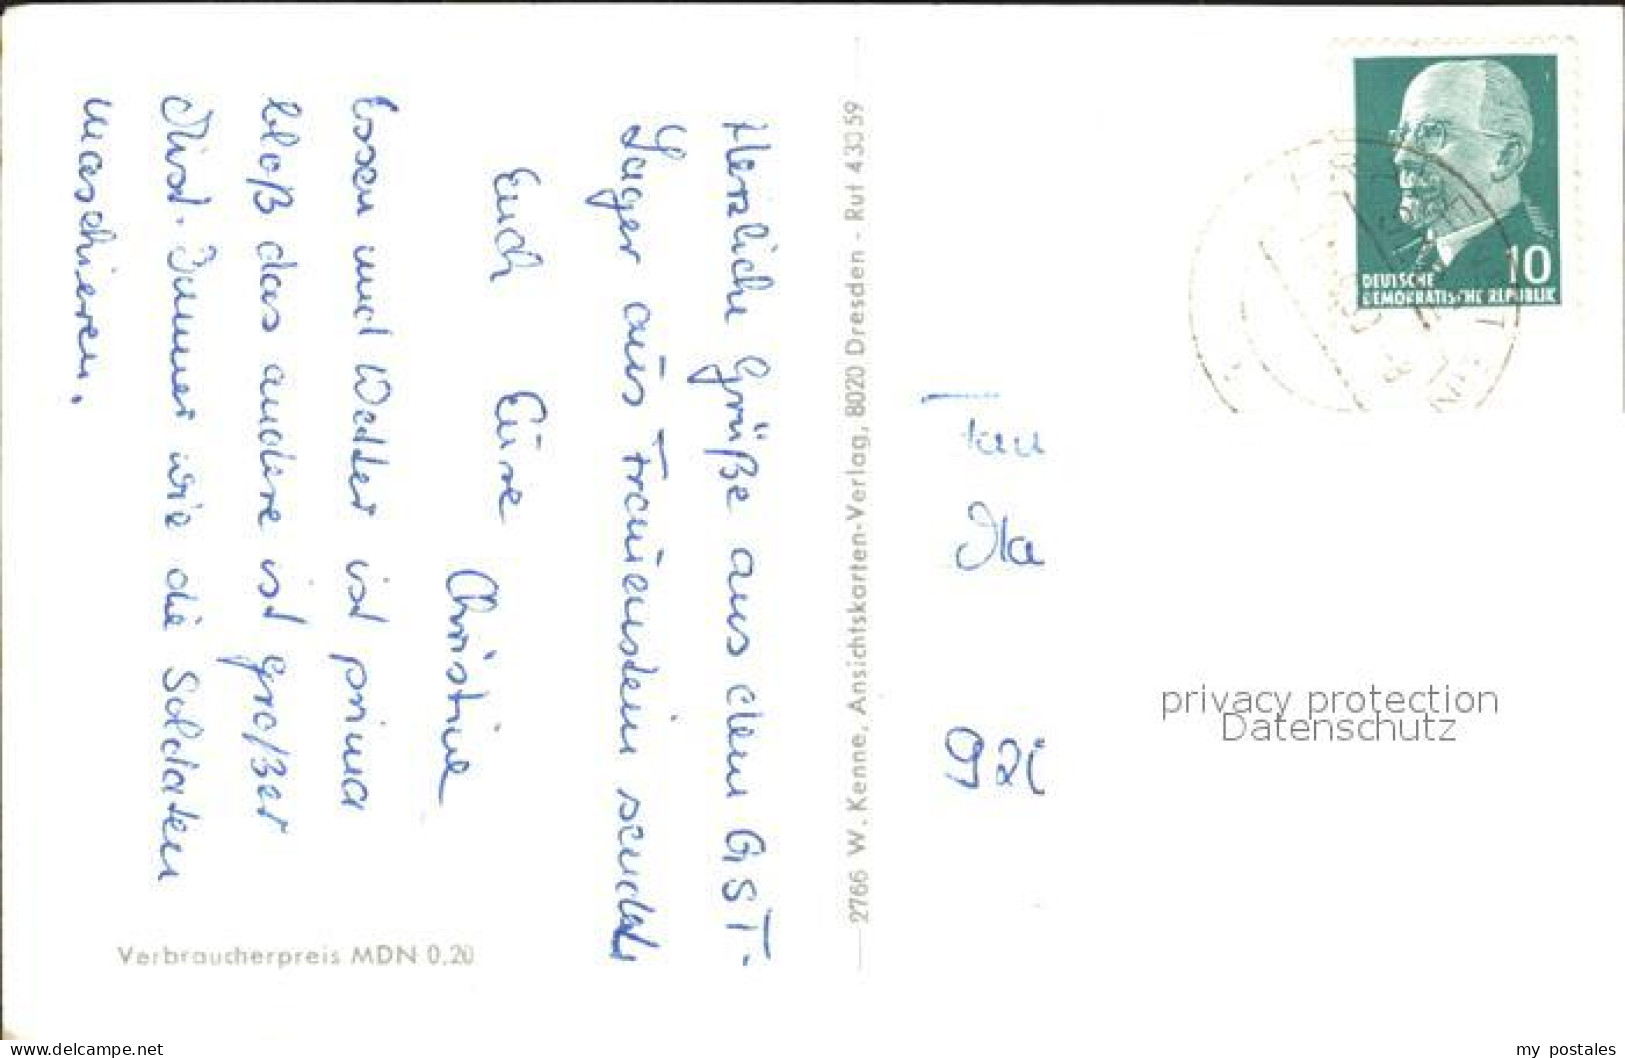 Herzliche Grüße aus dem GST-
Lager aus Frauenstein sendet
Euch Eure
Christine
Essen und Wetter ist prima
bloß das andere ist großer
Mist. Immer wie die Soldaten
maschieren.
Verbraucherpreis MDN 0,20
2766 W. Kenne, Ansichtskarten-Verlag, 8020 Dresden - Rut 43059
10
DEUTSCHE
DEMOKRATISCHE REPUBLIK
privacy protection
Datenschutz
www.delcampe.net
my_postales